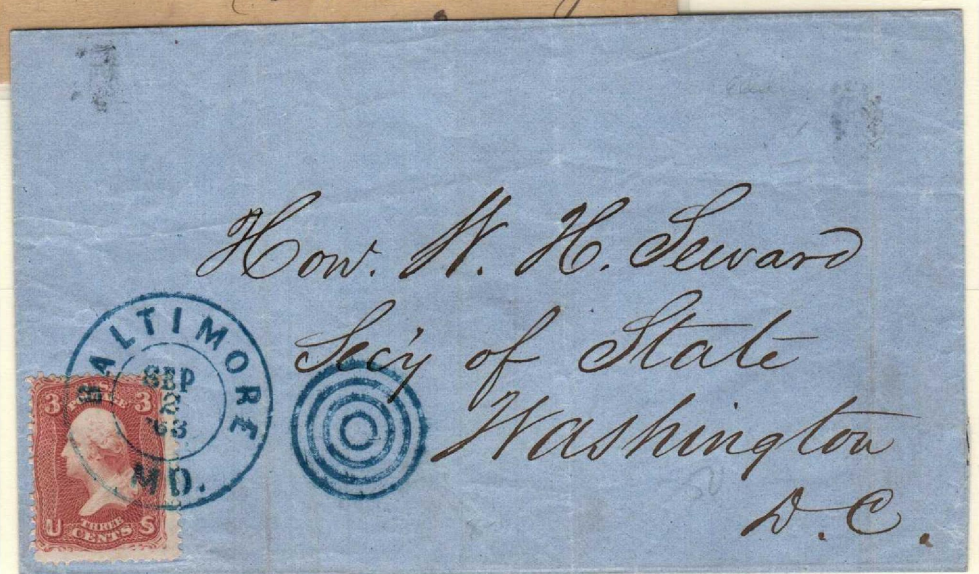 Hon. W. H. Seward
Sec'y of State
Washington
D. C.
BALTIMORE
SEP
2
'63
MD.
3 3
U THREE S
CENTS